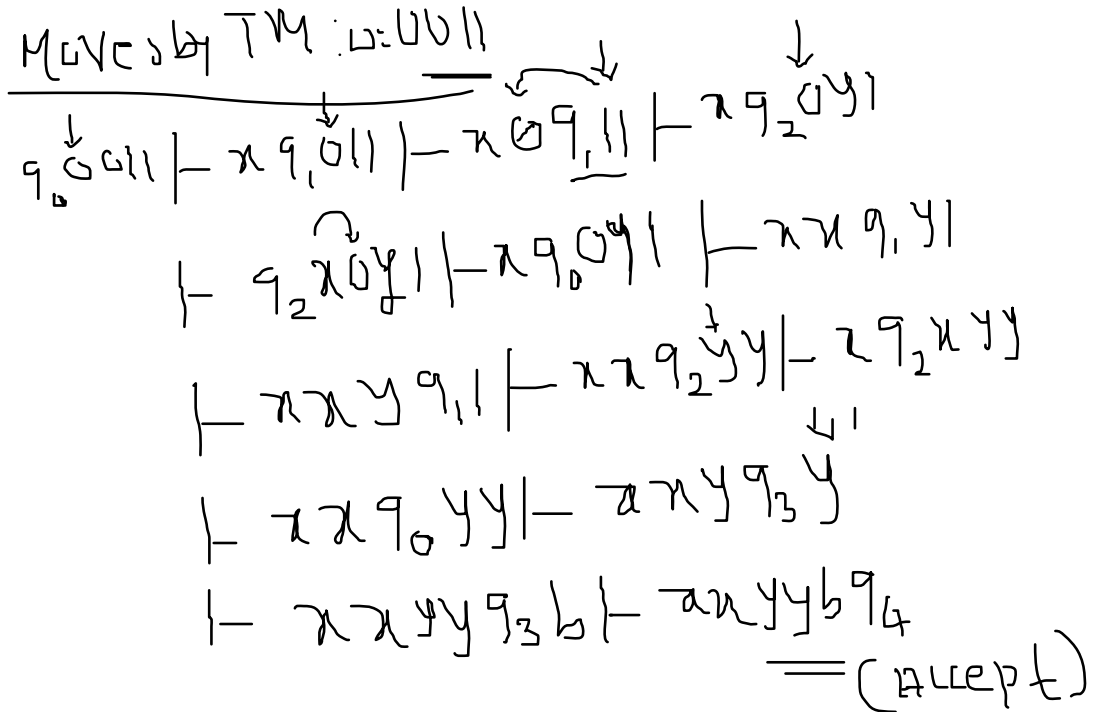 Moves by TM : w=0011
q₀0011 |– xq₁011 |– x0q₁11 |– xq₂0y1
|– q₂x0y1 |– xq₀0y1 |– xxq₁y1
|– xxyq₁1 |– xxq₂yy |– xq₂xyy
|– xxq₀yy |– xxyq₃y
|– xxyyq₃b |– xxyybq₄
(Accept)